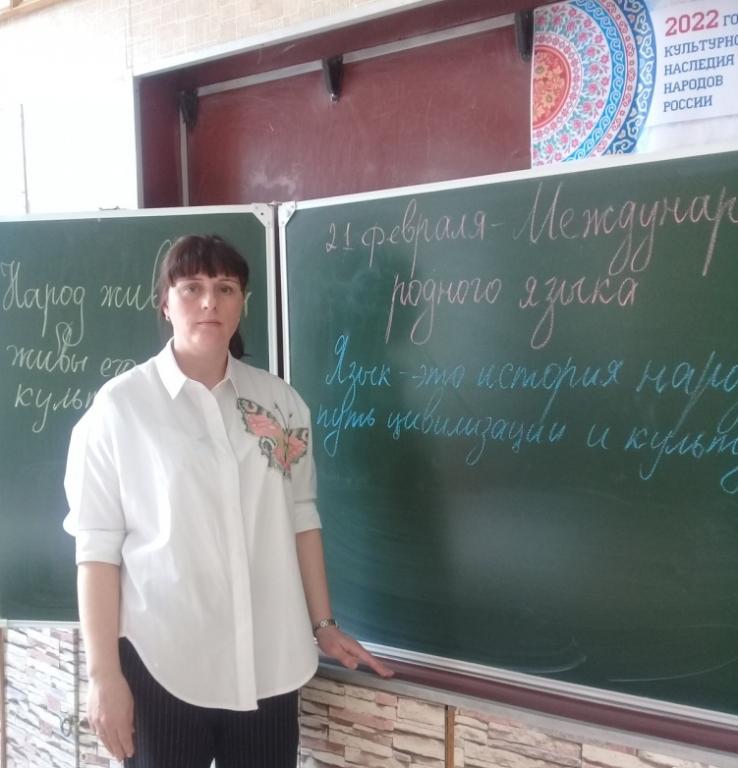 2022 ГО
КУЛЬТУРНО
НАСЛЕДИЯ
НАРОДОВ
РОССИИ
Народ жив
живы его
куль
21 февраля - Междунар
родного языка
Язык - это история наро
путь цивилизации и культу